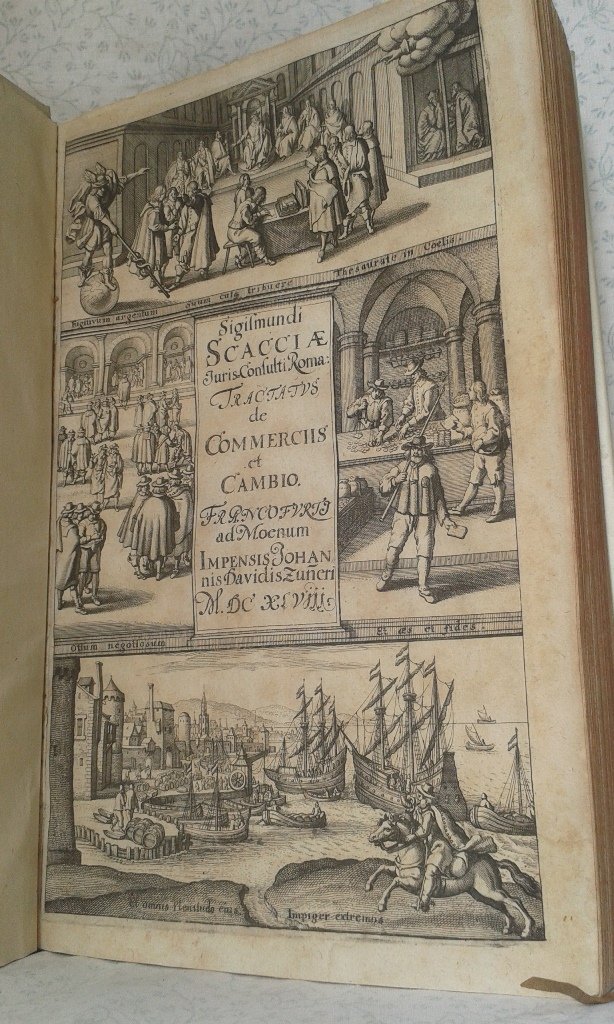 Fugitivum argentum
suum cuiq tribuere
Thesaurate in Coelis.
Sigismundi
SCACCIÆ
Juris Consulti Roma:
TRACTATVS
de
COMMERCIIS
et
CAMBIO.
FRANCOFVRTI
ad Moenum
IMPENSIS JOHAN
nis Davidis Zuneri
M. DC XLVIII.
Otium negotiosum
Et æs et fides.
Et omnis
Impiger extremos